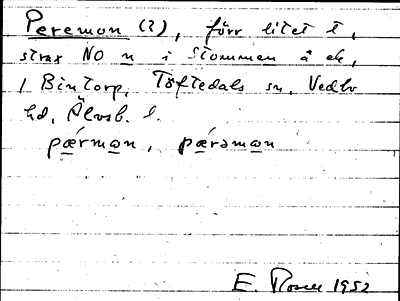 Peremon (?), förr litet t,
strax NO n i Stommen å ek,
1 Bintorp, Töftedals sn, Vedbo
hd, Älvsb. l.
pǽrmon, pǽrəmon
E. 1952